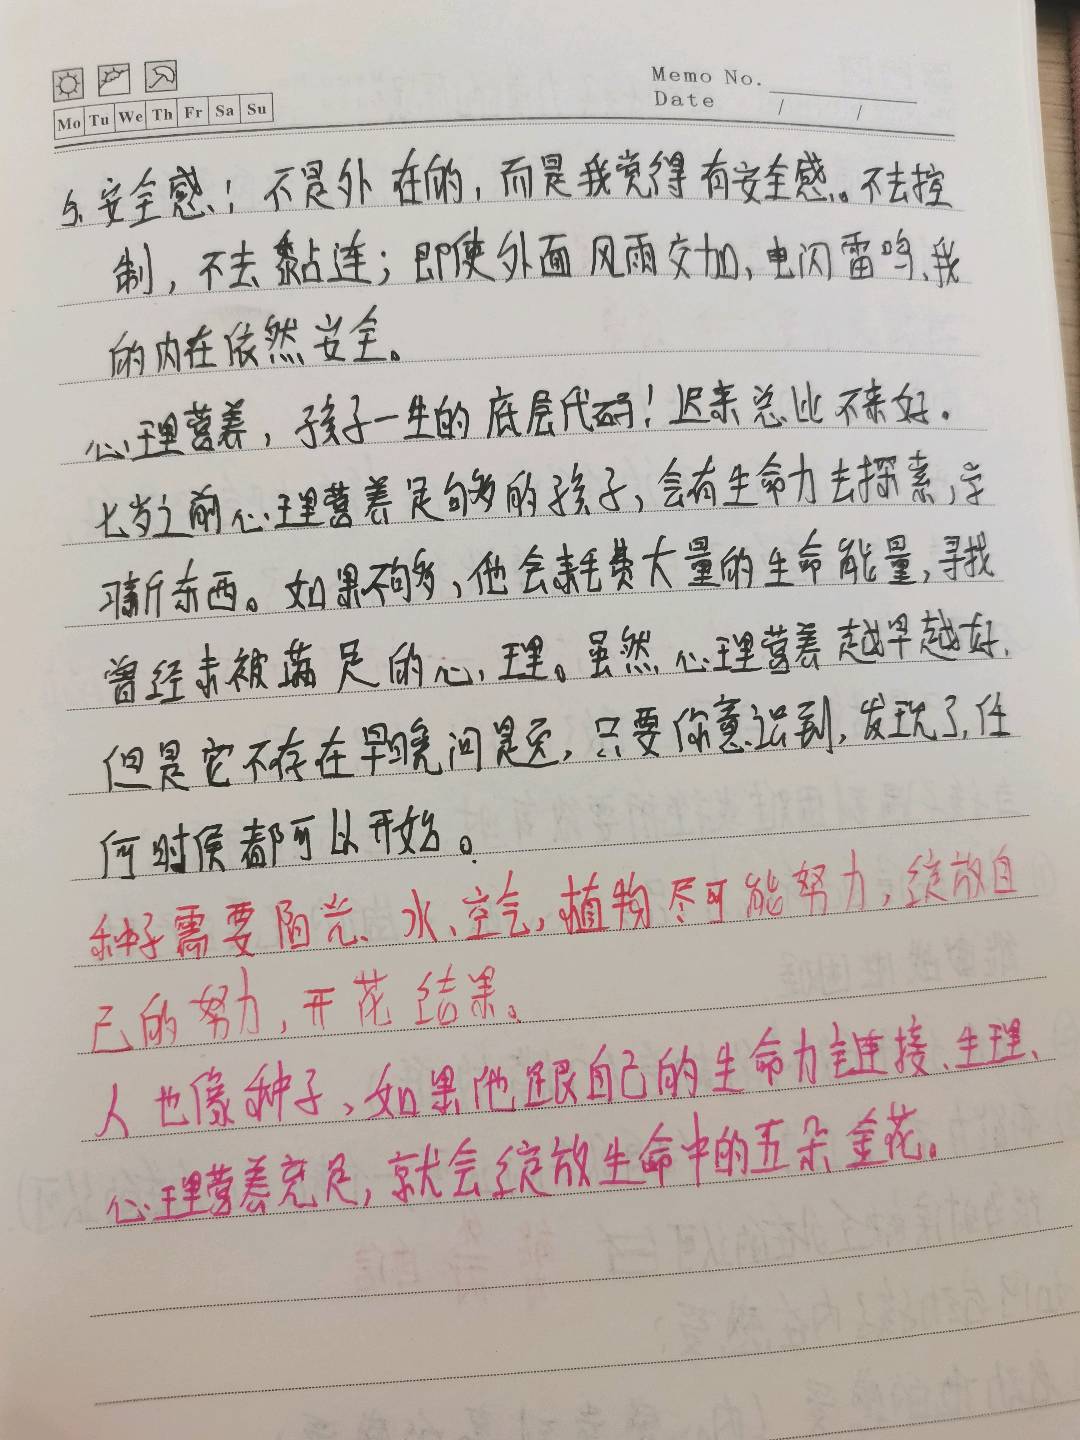 Memo No.
Mo Tu We Th Fr Sa Su
Date / /
5.安全感！不是外在的，而是我觉得有安全感。不去控
制，不去黏连；即使外面风雨交加、电闪雷鸣、我
的内在依然安全。
心理营养，孩子一生的底层代码！迟来总比不来好。
七岁之前心理营养足够的孩子，会有生命力去探索，学
习新东西。如果不够，他会耗费大量的生命能量，寻找
曾经未被满足的心理。虽然心理营养越早越好、
但是它不存在早晚问题，只要你意识到，发现了，任
何时侯都可以开始。
种子需要阳光、水、空气，植物尽可能努力，绽放自
己的努力，开花结果。
人也像种子、如果他跟自己的生命力连接、生理、
心理营养充足，就会绽放生命中的五朵金花。